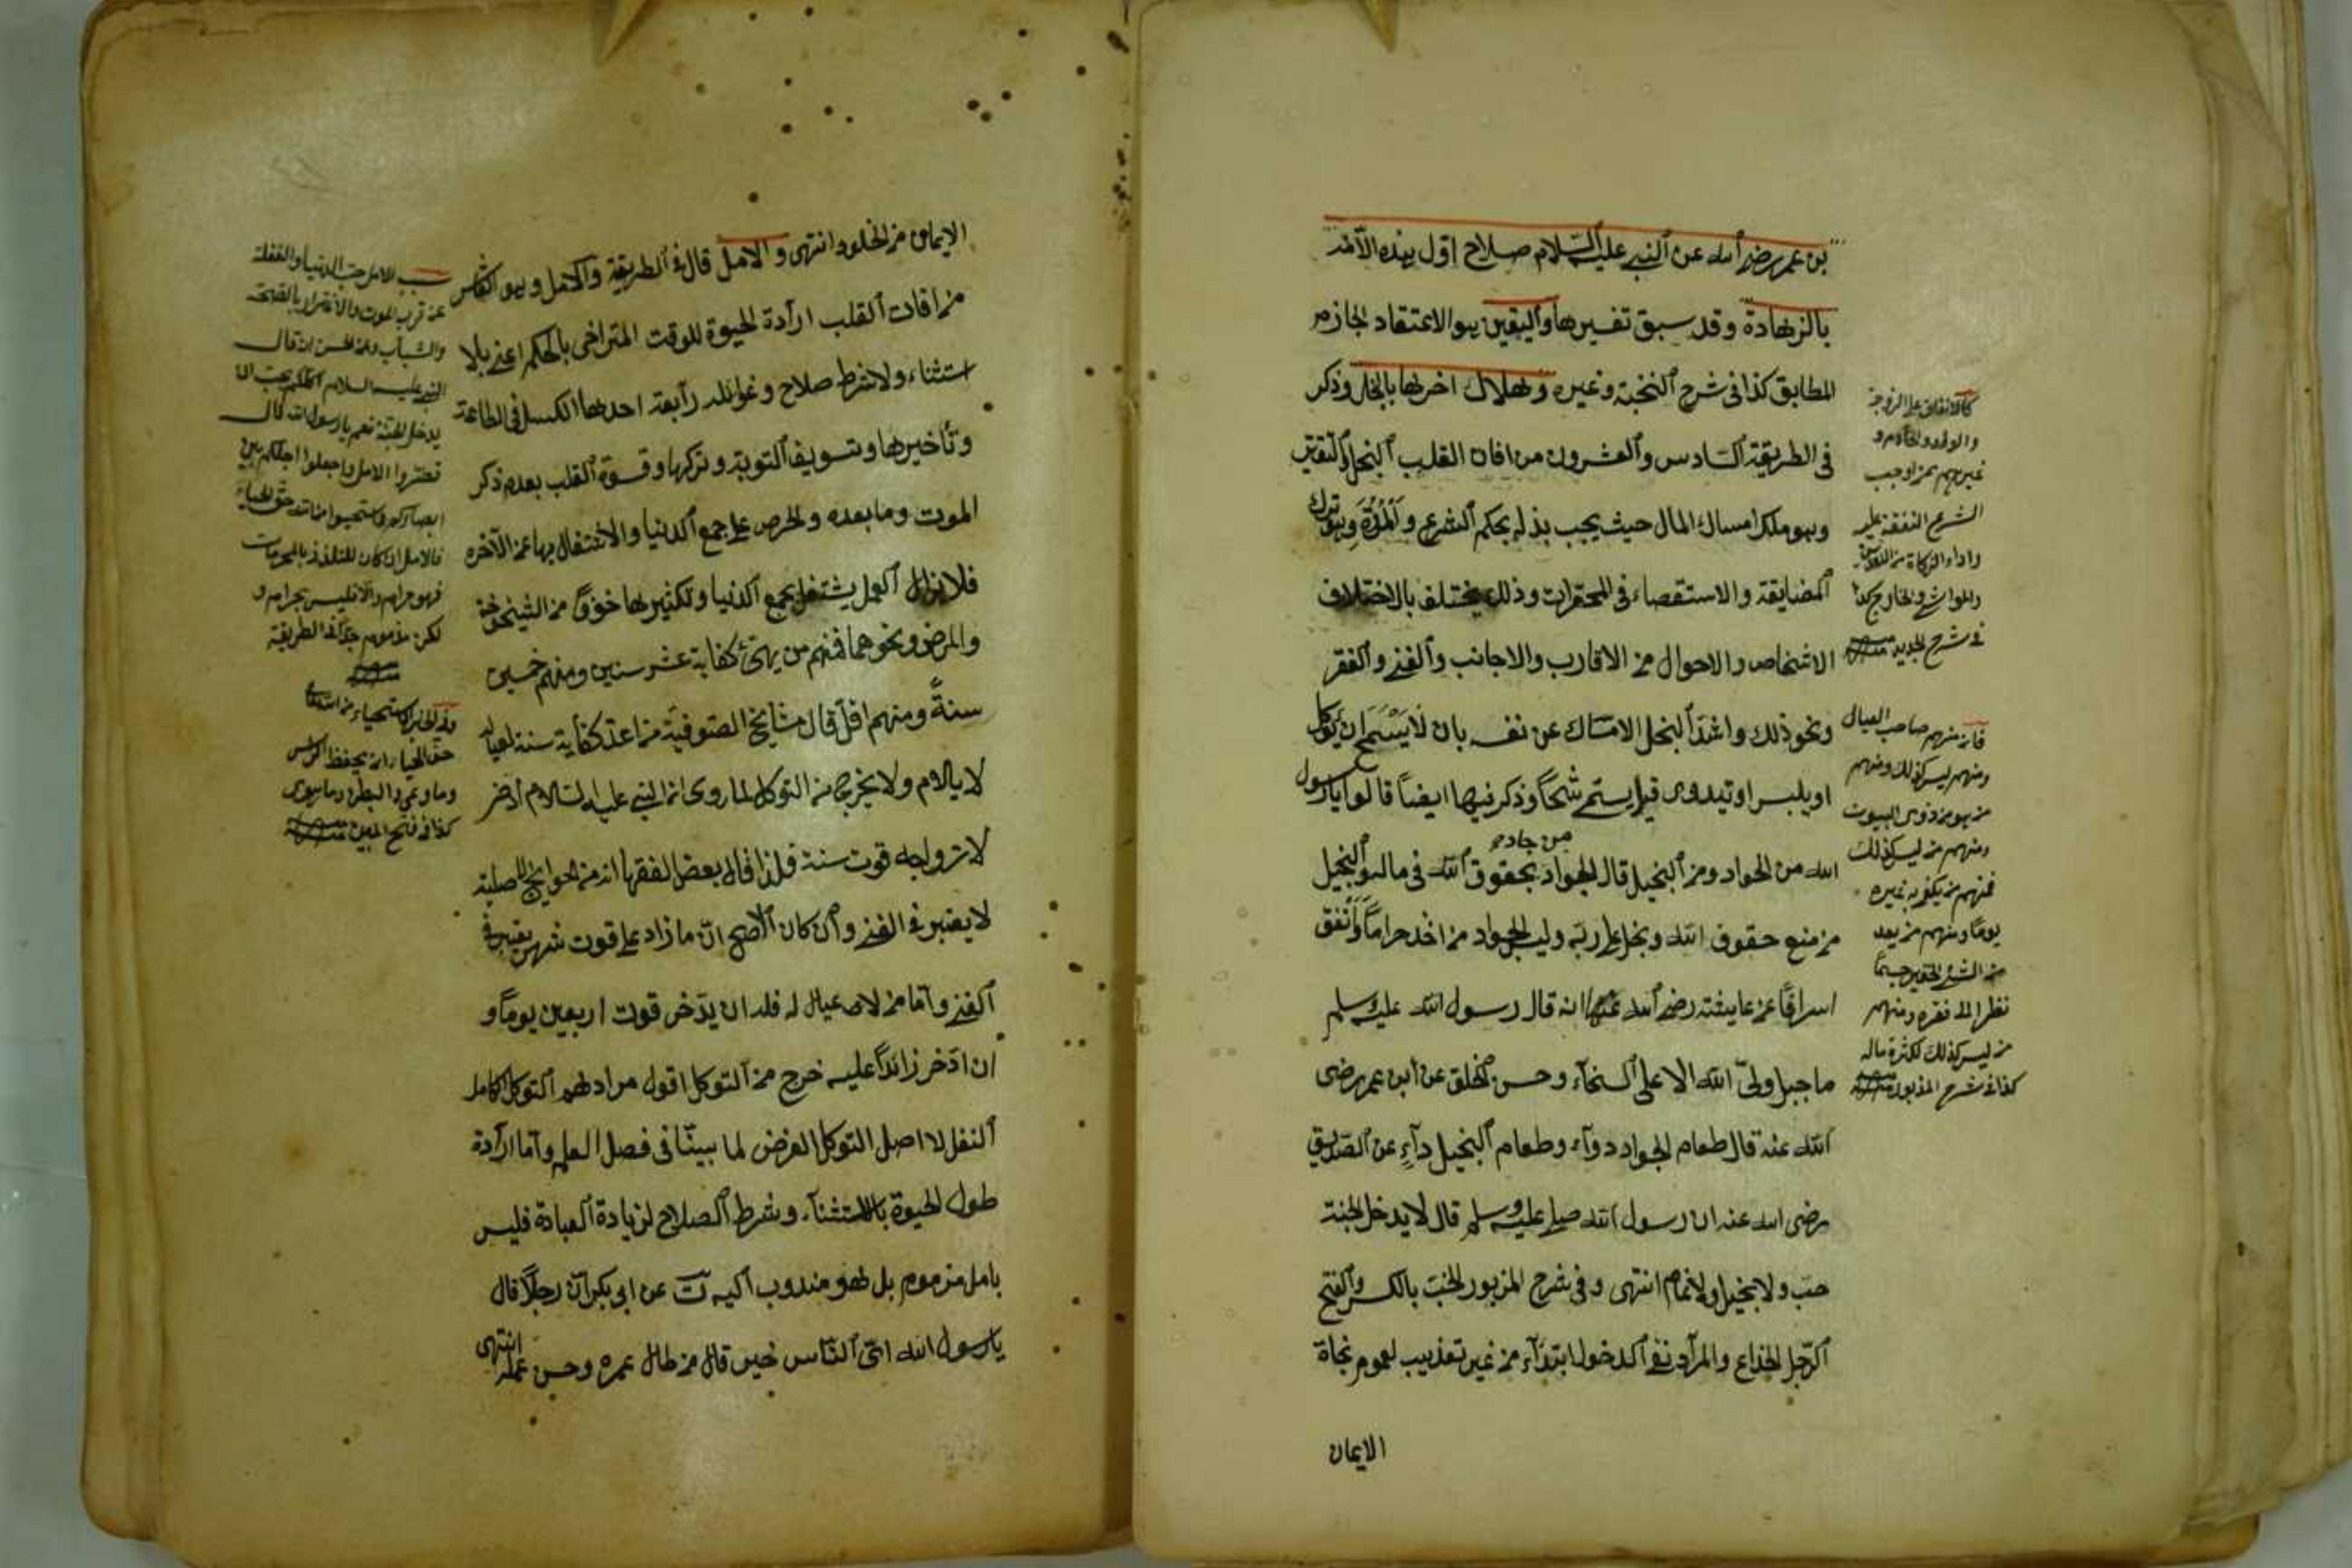 بن عمر رضي الله عن النبي عليه السلام صلاح اول هذه الامة
بالزهادة وقد سبق تفسيرها واليقين هو الاعتقاد الجازم
المطابق كذا في شرح النخبة وغيره وهلاك اخرها بالبخل وذكر
في الطريقة السادس والعشرون من افات القلب البخل والتقتير
وهو ملكة امساك المال حيث يجب بذله بحكم الشرع والمروّة وهو ترك
المضايقة والاستقصاء في المحقرات وذلك يختلف بالاختلاف
الاشخاص والاحوال من الاقارب والاجانب والغنى والفقر
ونحو ذلك واشد البخل الامساك عن نفسه بان لا يسمح ان يأكل
او يلبس او يتداوى قيل يسمى شحاً وذكر فيها ايضاً قالوا يا رسول
الله من الجواد ومن البخيل قال الجواد من جاد بحقوق الله في ماله والبخيل
من منع حقوق الله وبخل على ربه وليس الجواد من اخذ حراماً وأنفق
اسرافاً عن عايشة رضي الله عنها انه قال رسول الله عليه وسلم
ما جبل ولىّ الله الا على السخآء وحسن الخلق عن ابن عمر رضي
الله عنه قال طعام الجواد دوآء وطعام البخيل دآء عن الصديق
رضي الله عنه ان رسول الله صلى عليه وسلم قال لا يدخل الجنة
خب ولا بخيل ولا نمام انتهى وفي شرح المزبور الخب بالكسر والفتح
الرجل الخداع والمراد نفى الدخول ابتدآء من غير تعذيب لعموم نجاة
الايمان
كالانفاق على الزوجة
والاولاد والخادم و
غيرهم ممن اوجب
الشرع النفقة عليه
واداء الزكاة من النقدين
والمواشي والخارج كذا
في شرح الجديد
فان منهم صاحب العيال
ومنهم ليس كذلك ومنهم
من هو من ذوى البيوت
ومنهم من ليس كذلك
فمنهم من يكفو به غيره
يوما ومنهم من يعد
من الشئ الحقير جسيماً
نظرا الى فقره ومنهم
من ليس كذلك لكثرة ماله
كذا في شرح المزبور
الايمان من الخلود انتهى والامل قال في الطريقة والامل وهو العاشر
من افات القلب ارادة الحيوة للوقت المتراخي بالحكم اعني بلا
استثناء ولا شرط صلاح وغوائله رابعة احدها الكسل في الطاعة
وتأخيرها وتسويف التوبة وتركها وقسوة القلب بعدم ذكر
الموت وما بعده والحرص على جمع الدنيا والاشتغال بها عن الآخرة
فلا يزال الامل يشتغل بجمع الدنيا وتكثيرها خوفاً من الشيخوخة
والمرض ونحوهما فمنهم من يهئ كفاية عشر سنين ومنهم خمسين
سنةً ومنهم اقل قال مشايخ الصوفية من اعد كفاية سنة لعياله
لا يلام ولا يخرج من التوكل لما روى ان النبي عليه السلام ادخر
لازواجه قوت سنة فلذا قال بعض الفقها انه من الحوايج الاصلية
لا يعتبر في الغنى وان كان الاصح انّ ما زاد على قوت شهر يعتبر في
الغنى واما من لا عيال له فله ان يدّخر قوت اربعين يوماً و
ان ادّخر زائداً عليه خرج من التوكل اقول مرادهم التوكل الكامل
النفل لا اصل التوكل الفرض لما بيّنا في فصل العلم واما ارادة
طول الحيوة بالاستثناء وشرط الصلاح لزيادة العبادة فليس
بامل مذموم بل هو مندوب اليه ت عن ابي بكر ان رجلاً قال
يا رسول الله اىّ الناس خير قال من طال عمره وحسن عمله انتهى
سبب الامل حب الدنيا والغفلة
عن قرب الموت والاغترار بالصحة
والشباب وعن الحسن انه قال
النبي عليه السلام اكلكم يحب ان
يدخل الجنة نعم يا رسول الله قال
قصّروا الامل واجعلوا اجلكم بين
ابصاركم واستحيوا من الله حق الحياء
فالامل ان كان للتلذذ بالمحرمات
فهو حرام والا فليس بحرام و
لكن مذموم جدا كذا في الطريقة
وفي الخبر الاستحياء من الله تعالى
حق الحياء ان يحفظ الراس
وما وعى والبطن وما حوى
كذا في فتح المبين